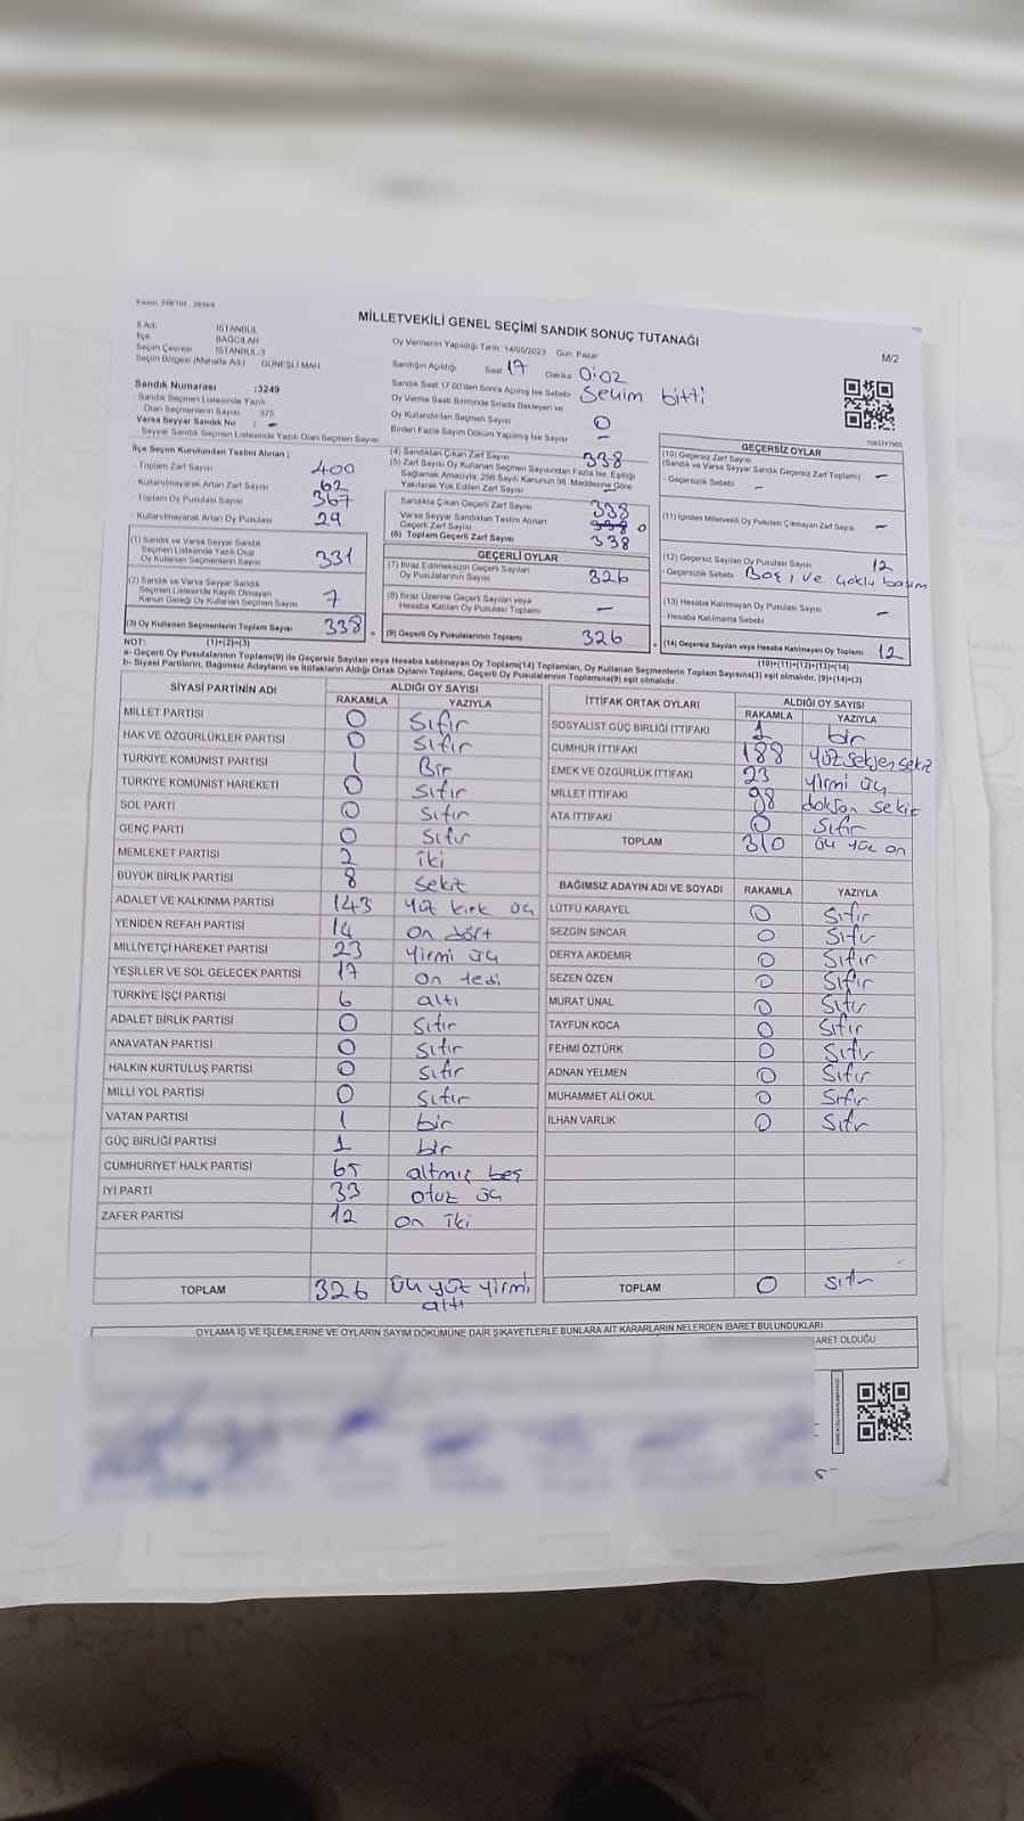 MİLLETVEKİLİ GENEL SEÇİMİ SANDIK SONUÇ TUTANAĞI
M/2
İli Adı: İSTANBUL
İlçe BAĞCILAR
Seçim Çevresi İSTANBUL-3
Seçim Bölgesi (Mahalle Adı) GÜNEŞLİ MAH
Sandık Numarası :3249
Sandık Seçmen Listesinde Yazılı
Olan Seçmenlerin Sayısı 375
Varsa Seyyar Sandık No : -
Seyyar Sandık Seçmen Listesinde Yazılı Olan Seçmen Sayısı
Oy Vermenin Yapıldığı Tarih: 14/05/2023 Gün: Pazar
Sandığın Açıldığı Saat 17 Dakika 0:02
Sandık Saat 17.00'den Sonra Açılmış İse Sebebi Seçim bitti
Oy Verme Saati Bitiminde Sırada Bekleyen ve
Oy Kullandırılan Seçmen Sayısı 0
Birden Fazla Sayım Döküm Yapılmış İse Sayısı -
İlçe Seçim Kurulundan Teslim Alınan ;
Toplam Zarf Sayısı 400
Kullanılmayarak Artan Zarf Sayısı 62
Toplam Oy Pusulası Sayısı 367
Kullanılmayarak Artan Oy Pusulası 29
(1) Sandık ve Varsa Seyyar Sandık
Seçmen Listesinde Yazılı Olup
Oy Kullanan Seçmenlerin Sayısı 331
(2) Sandık ve Varsa Seyyar Sandık
Seçmen Listesinde Kayıtlı Olmayan
Kanun Gereği Oy Kullanan Seçmen Sayısı 7
(3) Oy Kullanan Seçmenlerin Toplam Sayısı 338
(1)+(2)=(3)
(4) Sandıktan Çıkan Zarf Sayısı 338
(5) Zarf Sayısı Oy Kullanan Seçmen Sayısından Fazla İse, Eşitliği
Sağlamak Amacıyla, 298 Sayılı Kanunun 98. Maddesine Göre
Yakılarak Yok Edilen Zarf Sayısı -
Sandıkta Çıkan Geçerli Zarf Sayısı 338
Varsa Seyyar Sandıktan Teslim Alınan
Geçerli Zarf Sayısı 338 0
(6) Toplam Geçerli Zarf Sayısı 338
GEÇERLİ OYLAR
(7) İtiraz Edilmeksizin Geçerli Sayılan
Oy Pusulalarının Sayısı 326
(8) İtiraz Üzerine Geçerli Sayılan veya
Hesaba Katılan Oy Pusulası Toplamı -
(9) Geçerli Oy Pusulalarının Toplamı 326
GEÇERSİZ OYLAR
(10) Geçersiz Zarf Sayısı
(Sandık ve Varsa Seyyar Sandık Geçersiz Zarf Toplamı) -
Geçersizlik Sebebi -
(11) İçinden Milletvekili Oy Pusulası Çıkmayan Zarf Sayısı -
(12) Geçersiz Sayılan Oy Pusulası Sayısı 12
Geçersizlik Sebebi Boş, ve çoklu basım
(13) Hesaba Katılmayan Oy Pusulası Sayısı -
Hesaba Katılmama Sebebi
(14) Geçersiz Sayılan veya Hesaba Katılmayan Oy Toplamı 12
(10)+(11)+(12)+(13)=(14)
NOT:
a- Geçerli Oy Pusulalarının Toplamı(9) ile Geçersiz Sayılan veya Hesaba katılmayan Oy Toplamı(14) Toplamları, Oy Kullanan Seçmenlerin Toplam Sayısına(3) eşit olmalıdır. (9)+(14)=(3)
b- Siyasi Partilerin, Bağımsız Adayların ve İttifakların Aldığı Ortak Oyların Toplamı, Geçerli Oy Pusulalarının Toplamına(9) eşit olmalıdır.
SİYASİ PARTİNİN ADI ALDIĞI OY SAYISI
RAKAMLA YAZIYLA
MİLLET PARTİSİ 0 Sıfır
HAK VE ÖZGÜRLÜKLER PARTİSİ 0 Sıfır
TÜRKİYE KOMÜNİST PARTİSİ 1 Bir
TÜRKİYE KOMÜNİST HAREKETİ 0 Sıfır
SOL PARTİ 0 Sıfır
GENÇ PARTİ 0 Sıfır
MEMLEKET PARTİSİ 2 iki
BÜYÜK BİRLİK PARTİSİ 8 Sekiz
ADALET VE KALKINMA PARTİSİ 143 yüz kırk üç
YENİDEN REFAH PARTİSİ 14 on dört
MİLLİYETÇİ HAREKET PARTİSİ 23 yirmi üç
YEŞİLLER VE SOL GELECEK PARTİSİ 17 on yedi
TÜRKİYE İŞÇİ PARTİSİ 6 altı
ADALET BİRLİK PARTİSİ 0 Sıfır
ANAVATAN PARTİSİ 0 Sıfır
HALKIN KURTULUŞ PARTİSİ 0 Sıfır
MİLLİ YOL PARTİSİ 0 Sıfır
VATAN PARTİSİ 1 bir
GÜÇ BİRLİĞİ PARTİSİ 1 bir
CUMHURİYET HALK PARTİSİ 65 altmış beş
İYİ PARTİ 33 otuz üç
ZAFER PARTİSİ 12 on iki
TOPLAM 326 üç yüz yirmi
altı
İTTİFAK ORTAK OYLARI ALDIĞI OY SAYISI
RAKAMLA YAZIYLA
SOSYALİST GÜÇ BİRLİĞİ İTTİFAKI 1 bir
CUMHUR İTTİFAKI 188 yüz seksen sekiz
EMEK VE ÖZGÜRLÜK İTTİFAKI 23 yirmi üç
MİLLET İTTİFAKI 98 doksan sekiz
ATA İTTİFAKI 0 Sıfır
TOPLAM 310 üç yüz on
BAĞIMSIZ ADAYIN ADI VE SOYADI RAKAMLA YAZIYLA
LÜTFÜ KARAYEL 0 Sıfır
SEZGİN SİNCAR 0 Sıfır
DERYA AKDEMİR 0 Sıfır
SEZEN ÖZEN 0 Sıfır
MURAT ÜNAL 0 Sıfır
TAYFUN KOCA 0 Sıfır
FEHMİ ÖZTÜRK 0 Sıfır
ADNAN YELMEN 0 Sıfır
MUHAMMET ALİ OKUL 0 Sıfır
İLHAN VARLIK 0 Sıfır
TOPLAM 0 Sıfır
OYLAMA İŞ VE İŞLEMLERİNE VE OYLARIN SAYIM DÖKÜMÜNE DAİR ŞİKAYETLERLE BUNLARA AİT KARARLARIN NELERDEN İBARET BULUNDUKLARI
ARET OLDUĞU